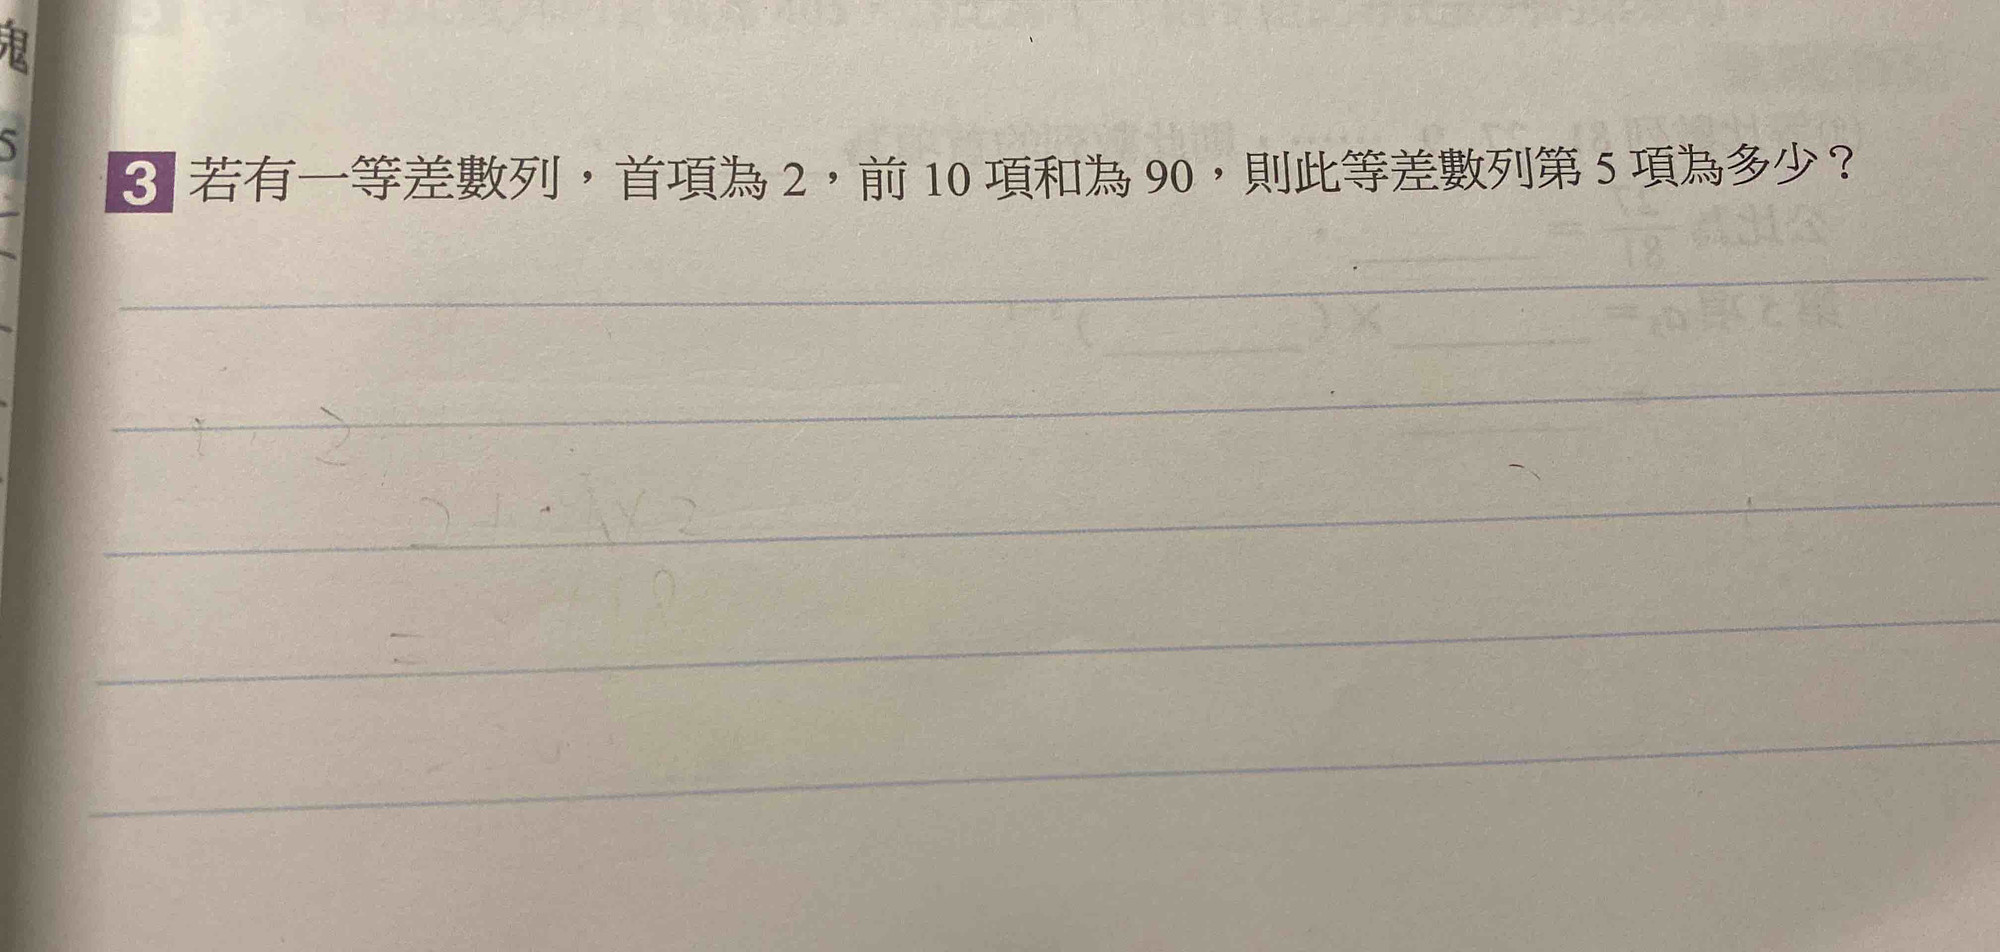 3 若有一等差數列，首項為 2，前 10 項和為 90，則此等差數列第 5 項為多少？